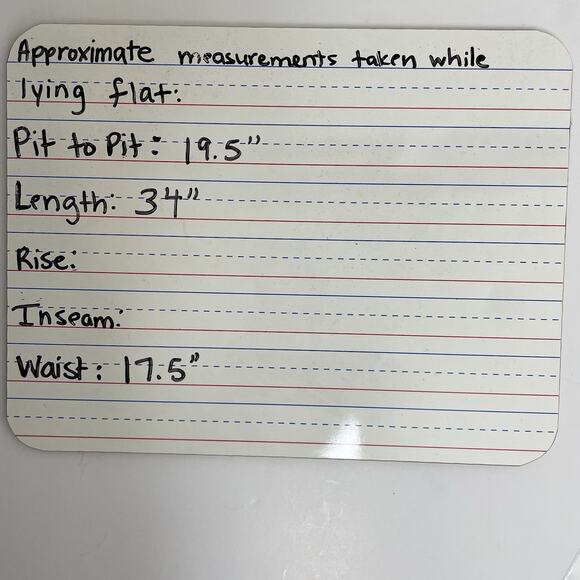 Approximate measurements taken while
lying flat:
Pit to Pit: 19.5"
Length: 34"
Rise:
Inseam:
Waist: 17.5"